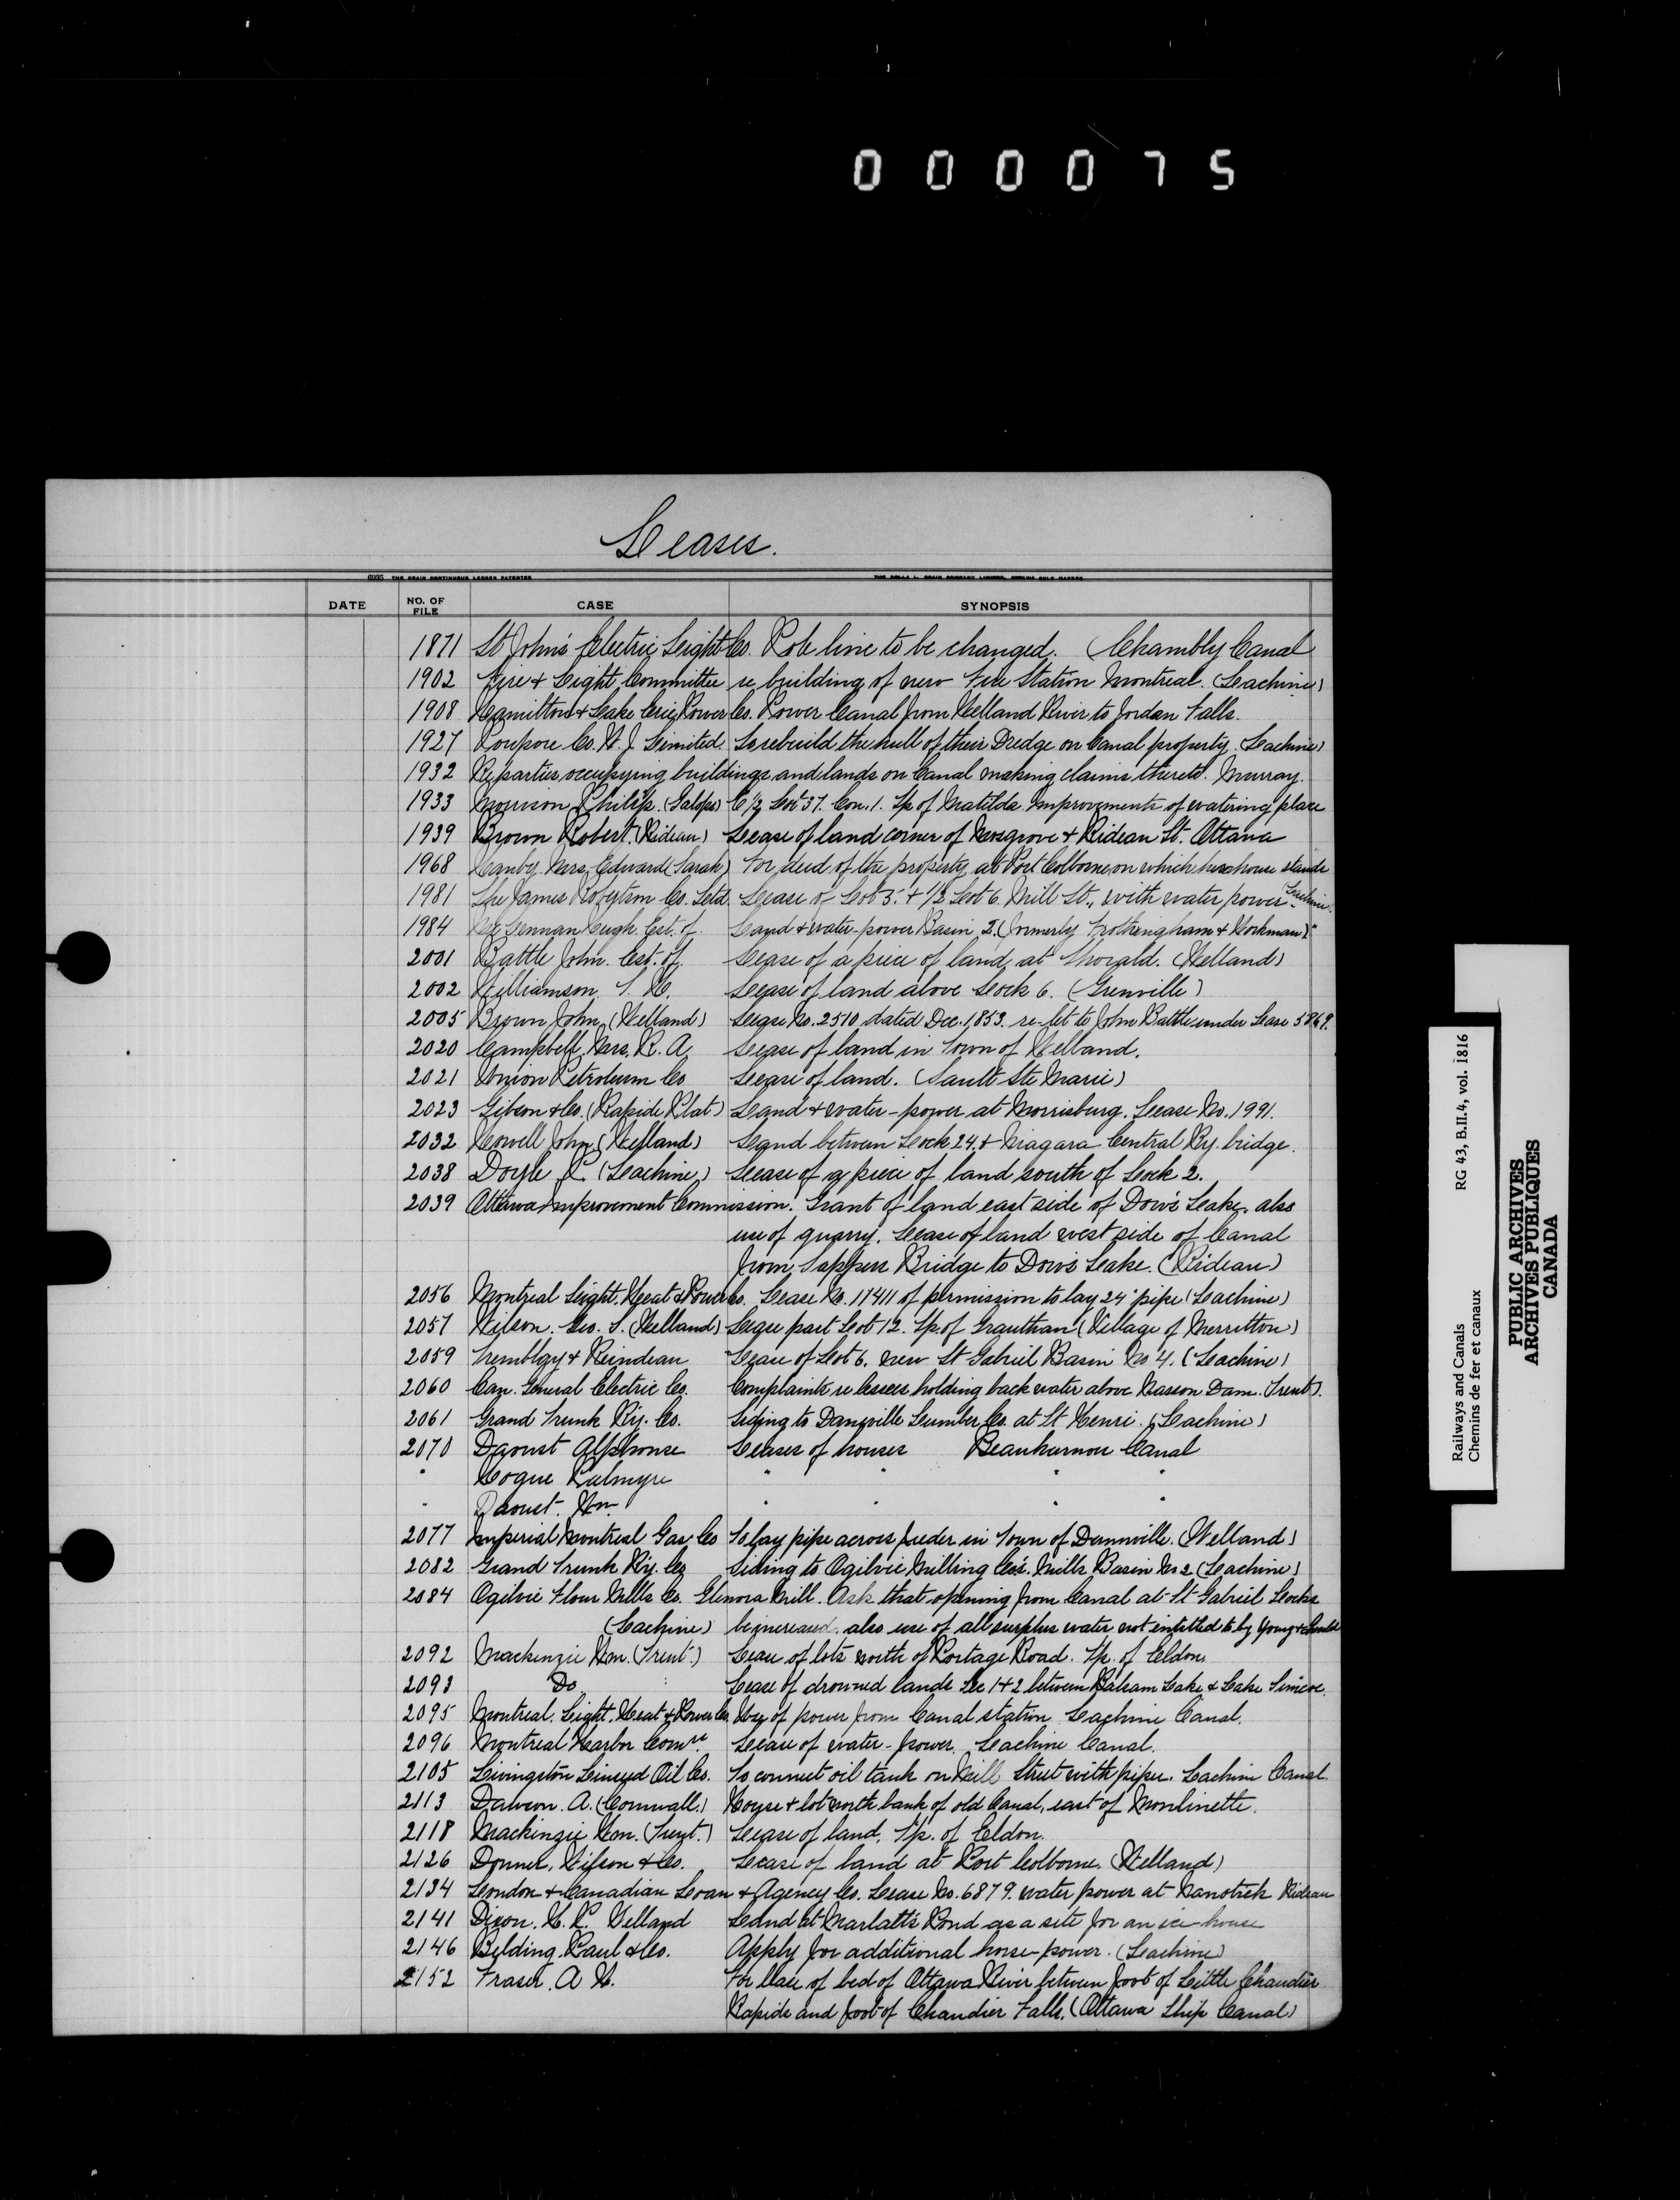 000075
Leases.
6935 THE CRAIN CONTINUOUS LEDGER PATENTED
DATE NO. OF FILE CASE SYNOPSIS
1871 St Johns Electric Light Co. Pole line to be changed. (Chambly Canal
1902 Fire & Light Committee re building of new Fire Station Montreal. (Lachine)
1908 Hamilton & Lake Erie Power Co. Power Canal from Welland River to Jordan Falls.
1927 Poupore Co. W. J. Limited. To rebuild the hull of their Dredge on Canal property. Lachine)
1932 Re parties occupying buildings and lands on Canal making claims thereto. Murray.
1933 Morrison Philip. (Galops) E 1/2 Lot 37. Con. 1. Tp of Matilda Improvements of watering place
1939 Brown Robert. (Rideau) Lease of land corner of Mosgrove & Rideau St. Ottawa
1968 Canby Mrs. Edward (Sarah) For deed of the property at Port Colborne on which her house stands
1981 The James Robertson Co. Ltd. Lease of Lot 5 & 1/2 Lot 6. Mill St., with water power Lachine.
1984 McLennan Hugh. Est. of. Land & water-power Basin 2. (formerly Frothingham & Workman) "
2001 Battle John. Est. of. Lease of a piece of land at Thorald. (Welland)
2002 Williamson, Lease of land above Lock 6. (Grenville)
2005 Brown John (Welland) Lease No. 2510 dated Dec. 1853. re-let to John Battle under Lease
2020 Campbell, Mrs. R. A. Lease of land in Town of Welland.
2021 Union Petroleum Co Lease of land. (Sault Ste Marie)
2023 Gibson & Co. (Rapide Plat) Land & water-power at Morrisburg. Lease No. 1991.
2032 Howell John (Welland) Land between Lock 24 & Niagara Central Ry. bridge.
2038 Doyle P. (Lachine) Lease of a piece of land south of Lock 2.
2039 Ottawa Improvement Commission. Grant of land east side of Dow's Lake. also
use of quarry. Lease of land west side of Canal
from Sappers Bridge to Dow's Lake. (Rideau)
2056 Montreal Light, Heat & Power Co. Lease No. 17411 of permission to lay 24" pipe (Lachine)
2057 Wilson. Geo. S. (Welland) Lease part Lot 12. Tp. of Grantham (Village of Merritton)
2059 Tremblay & Lease of Lot 6. new St Gabriel Basin No 4. (Lachine)
2060 Can. General Electric Co. Complaints re lessees holding back water above Nasson Dam. Trent).
2061 Grand Trunk Ry. Co. Siding to Danville Lumber Co. at St Henri. (Lachine)
2070 Daoust Alphonse Leases of houses Beauharnois Canal
" Hogue Palmyre " " " "
" Daoust. Wm. " " " "
2077 Imperial Montreal Gas Co To lay pipe across feeder in Town of Dunnville. (Welland)
2082 Grand Trunk Ry. Co Siding to Ogilvie Milling Co's. Mills Basin No 2 (Lachine)
2084 Ogilvie Flour Mills Co. Glenora Mill. Ask that opening from Canal at St Gabriel Locks
(Lachine) be increased. also use of all surplus water not intitled to by Young &
2092 Mackenzie Wm. (Trent.) Lease of lots north of Portage Road. Tp. of Eldon
2093 Do Lease of drowned lands Sec 1 & 2 between Balsam Lake & Lake Simcoe.
2095 Montreal. Light. Heat & Power Co. Use of power from Canal station Lachine Canal.
2096 Montreal Harbor Comrs. Lease of water-power. Lachine Canal.
2105 Livingston Linseed Oil Co. To connect oil tank on Mill Street with pipe. Lachine Canal.
2113 Dawson. A. (Cornwall.) House & lot north bank of old Canal, east of Moulinette.
2118 Mackenzie Wm. (Trent.) Lease of land. Tp. of Eldon.
2126 Donner, Wilson & Co. Lease of land at Port Colborne. (Welland)
2134 London & Canadian Loan & Agency Co. Lease No. 6879. water power at Manotick Rideau
2141 Dixon. Welland Land at Marlatt's Pond as a site for an ice-house
2146 Belding Paul & Co. Apply for additional horse-power. (Lachine)
2152 Fraser. A. W. For lease of bed of Ottawa River between foot of Little Chaudier
Rapids and foot of Chaudier Falls. (Ottawa Ship Canal)
Railways and Canals RG 43, B.II.4, vol. 1816
Chemins de fer et canaux
PUBLIC ARCHIVES
ARCHIVES PUBLIQUES
CANADA